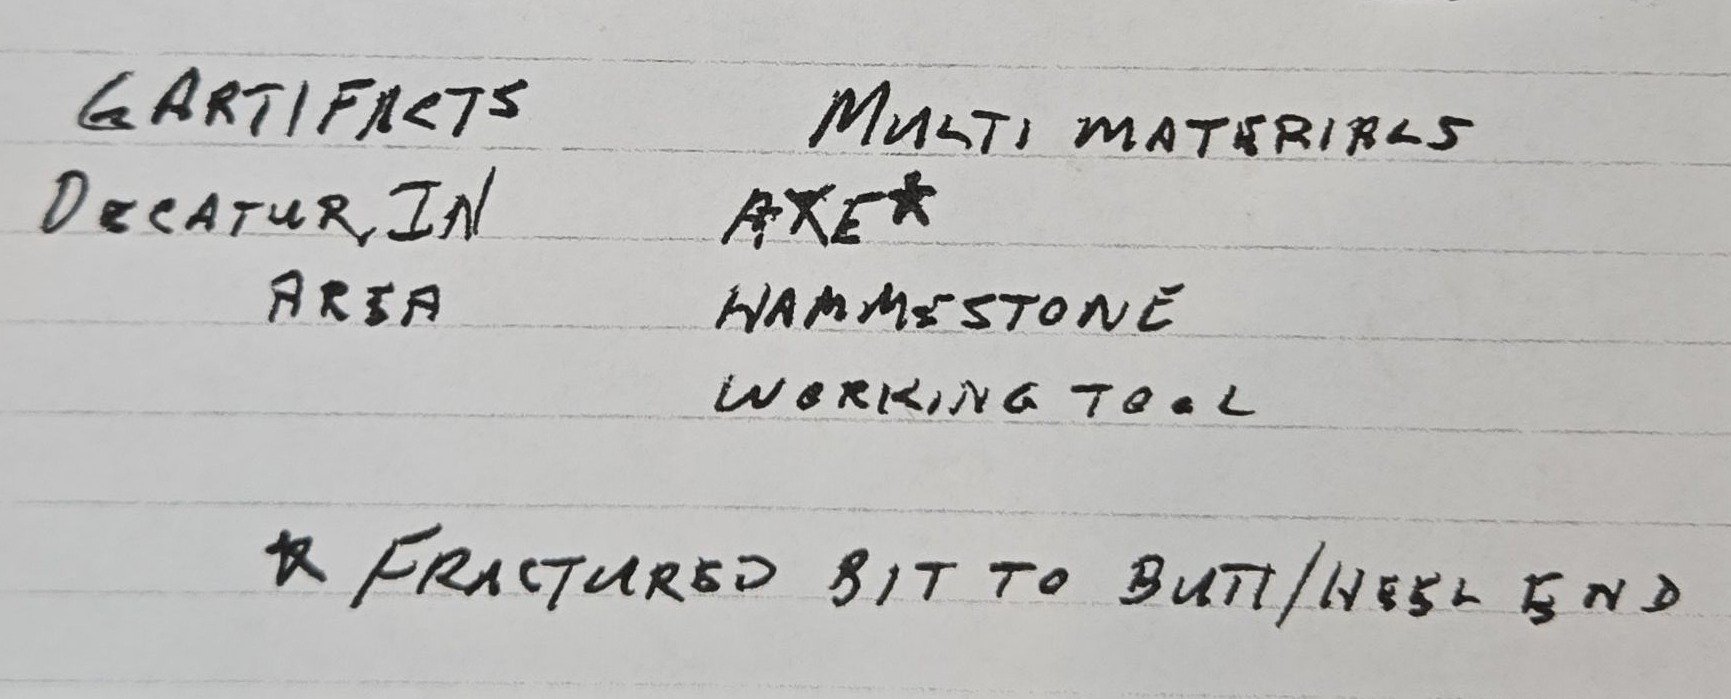 6 ARTIFACTS
MULTI MATERIALS
DECATUR, IN
AREA
AXE*
HAMMESTONE
WORKING TOOL
* FRACTURED BIT TO BUTT/HEEL END